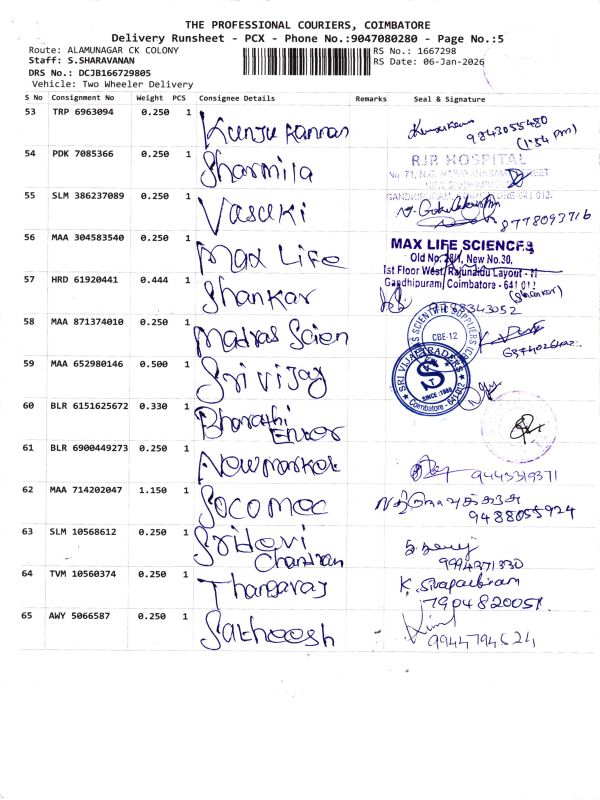 THE PROFESSIONAL COURIERS, COIMBATORE
Delivery Runsheet - PCX - Phone No.:9047080280 - Page No.:5
Route: ALAMUNAGAR CK COLONY
RS No.: 1667298
Staff: S.SHARAVANAN
RS Date: 06-Jan-2026
DRS No.: DCJB166729805
Vehicle: Two Wheeler Delivery
S No Consignment No Weight PCS Consignee Details Remarks Seal & Signature
53 TRP 6963094 0.250 1 Kunju Kannan 9843055480
(1:54 Pm)
54 PDK 7085366 0.250 1 Sharmila RJR HOSPITAL
55 SLM 386237089 0.250 1 Vasuki 8778093716
56 MAA 304583540 0.250 1 Max Life MAX LIFE SCIENCES
Old No. 28/1, New No.30,
1st Floor West Rajunaidu Layout - 11
Gandhipuram, Coimbatore - 641 012
57 HRD 61920441 0.444 1 Shankar (Shankar)
58 MAA 871374010 0.250 1 Madras Scien CBE-12
59 MAA 652980146 0.500 1 Sri Vijay SRI VIJAY TRADERS
SINCE :1986
Coimbatore - 641 012
60 BLR 6151625672 0.330 1 Bharathi
61 BLR 6900449273 0.250 1 New Market 9445319371
62 MAA 714202047 1.150 1 Socomec
9488055924
63 SLM 10568612 0.250 1 Sridevi
Chandran 9994371330
64 TVM 10560374 0.250 1 Thangaraj K. Sivaprakasam
7904820051
65 AWY 5066587 0.250 1 Sathoosh
9944794624